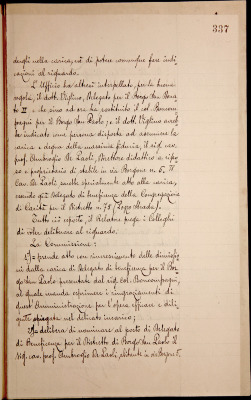 337
derogli nella carica, nè di potere comunque fare indi-
cazioni al riguardo.
L'Ufficio ha altresì interpellato, per la buona
regola, il dott. Viglino, Delegato per il Borgo San Dona-
to II e che sino ad ora ha sostituito il col. Boncom-
pagni per il Borgo San Paolo; e il dott. Viglino avreb-
be indicato come persona disposta ad assumere la
carica e degna della massima fiducia, il sig. cav.
prof. Ambrogio De Paoli, Direttore didattico a ripo-
so e proprietario di stabile in via Borgone n. 5. Il
Cav. De Paoli anche specialmente atto alla carica,
essendo già Delegato di beneficenza della Congregazione
di Carità per il Distretto n. 75 (Lega Strada).
Tutto ciò esposto, il Relatore prega i Colleghi
di voler deliberare al riguardo.
La Commissione:
1°) = prende atto con rincrescimento delle dimissio-
ni dalla carica di Delegato di beneficenza per il Bor-
go San Paolo presentate dal sig. col. Boncompagni,
al quale manda esprimere i ringraziamenti di
quest'Amministrazione per l'opera efficace e dili-
gente spiegata nel delicato incarico;
2°) = delibera di nominare al posto di Delegato
di Beneficenza per il Distretto di Borgo San Paolo il
sig. cav. prof. Ambrogio De Paoli, abitante in via Borgone 5.